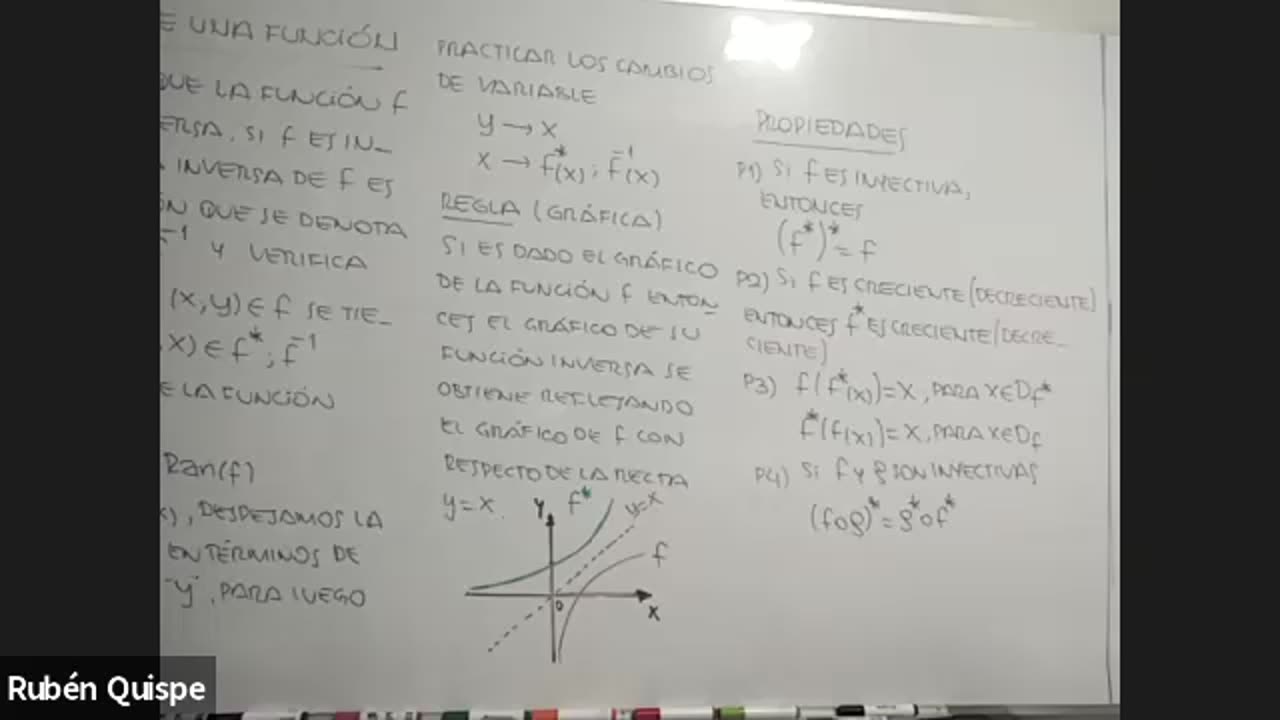 E UNA FUNCIÓN
QUE LA FUNCIÓN f
ERSA, SI f ES IN_
INVERSA DE f ES
ÓN QUE SE DENOTA
f⁻¹ Y VERIFICA
(x,y) ∈ f SE TIE_
x) ∈ f*; f⁻¹
E LA FUNCIÓN
Ran(f)
x), DESPEJAMOS LA
EN TÉRMINOS DE
"y", PARA LUEGO
PRACTICAR LOS CAMBIOS
DE VARIABLE
y → x
x → f*(x); f⁻¹(x)
REGLA (GRÁFICA)
SI ES DADO EL GRÁFICO
DE LA FUNCIÓN f ENTON_
CES EL GRÁFICO DE SU
FUNCIÓN INVERSA SE
OBTIENE REFLEJANDO
EL GRÁFICO DE f CON
RESPECTO DE LA RECTA
y=x.
Y
f*
y=x
f
0
X
PROPIEDADES
P1) SI f ES INYECTIVA,
ENTONCES
(f*)* = f
P2) SI f ES CRECIENTE (DECRECIENTE)
ENTONCES f* ES CRECIENTE (DECRE_
CIENTE)
P3) f(f*(x)) = x, PARA x ∈ Df*
f*(f(x)) = x, PARA x ∈ Df
P4) SI f y g SON INYECTIVAS
(fog)* = g*of*
Rubén Quispe